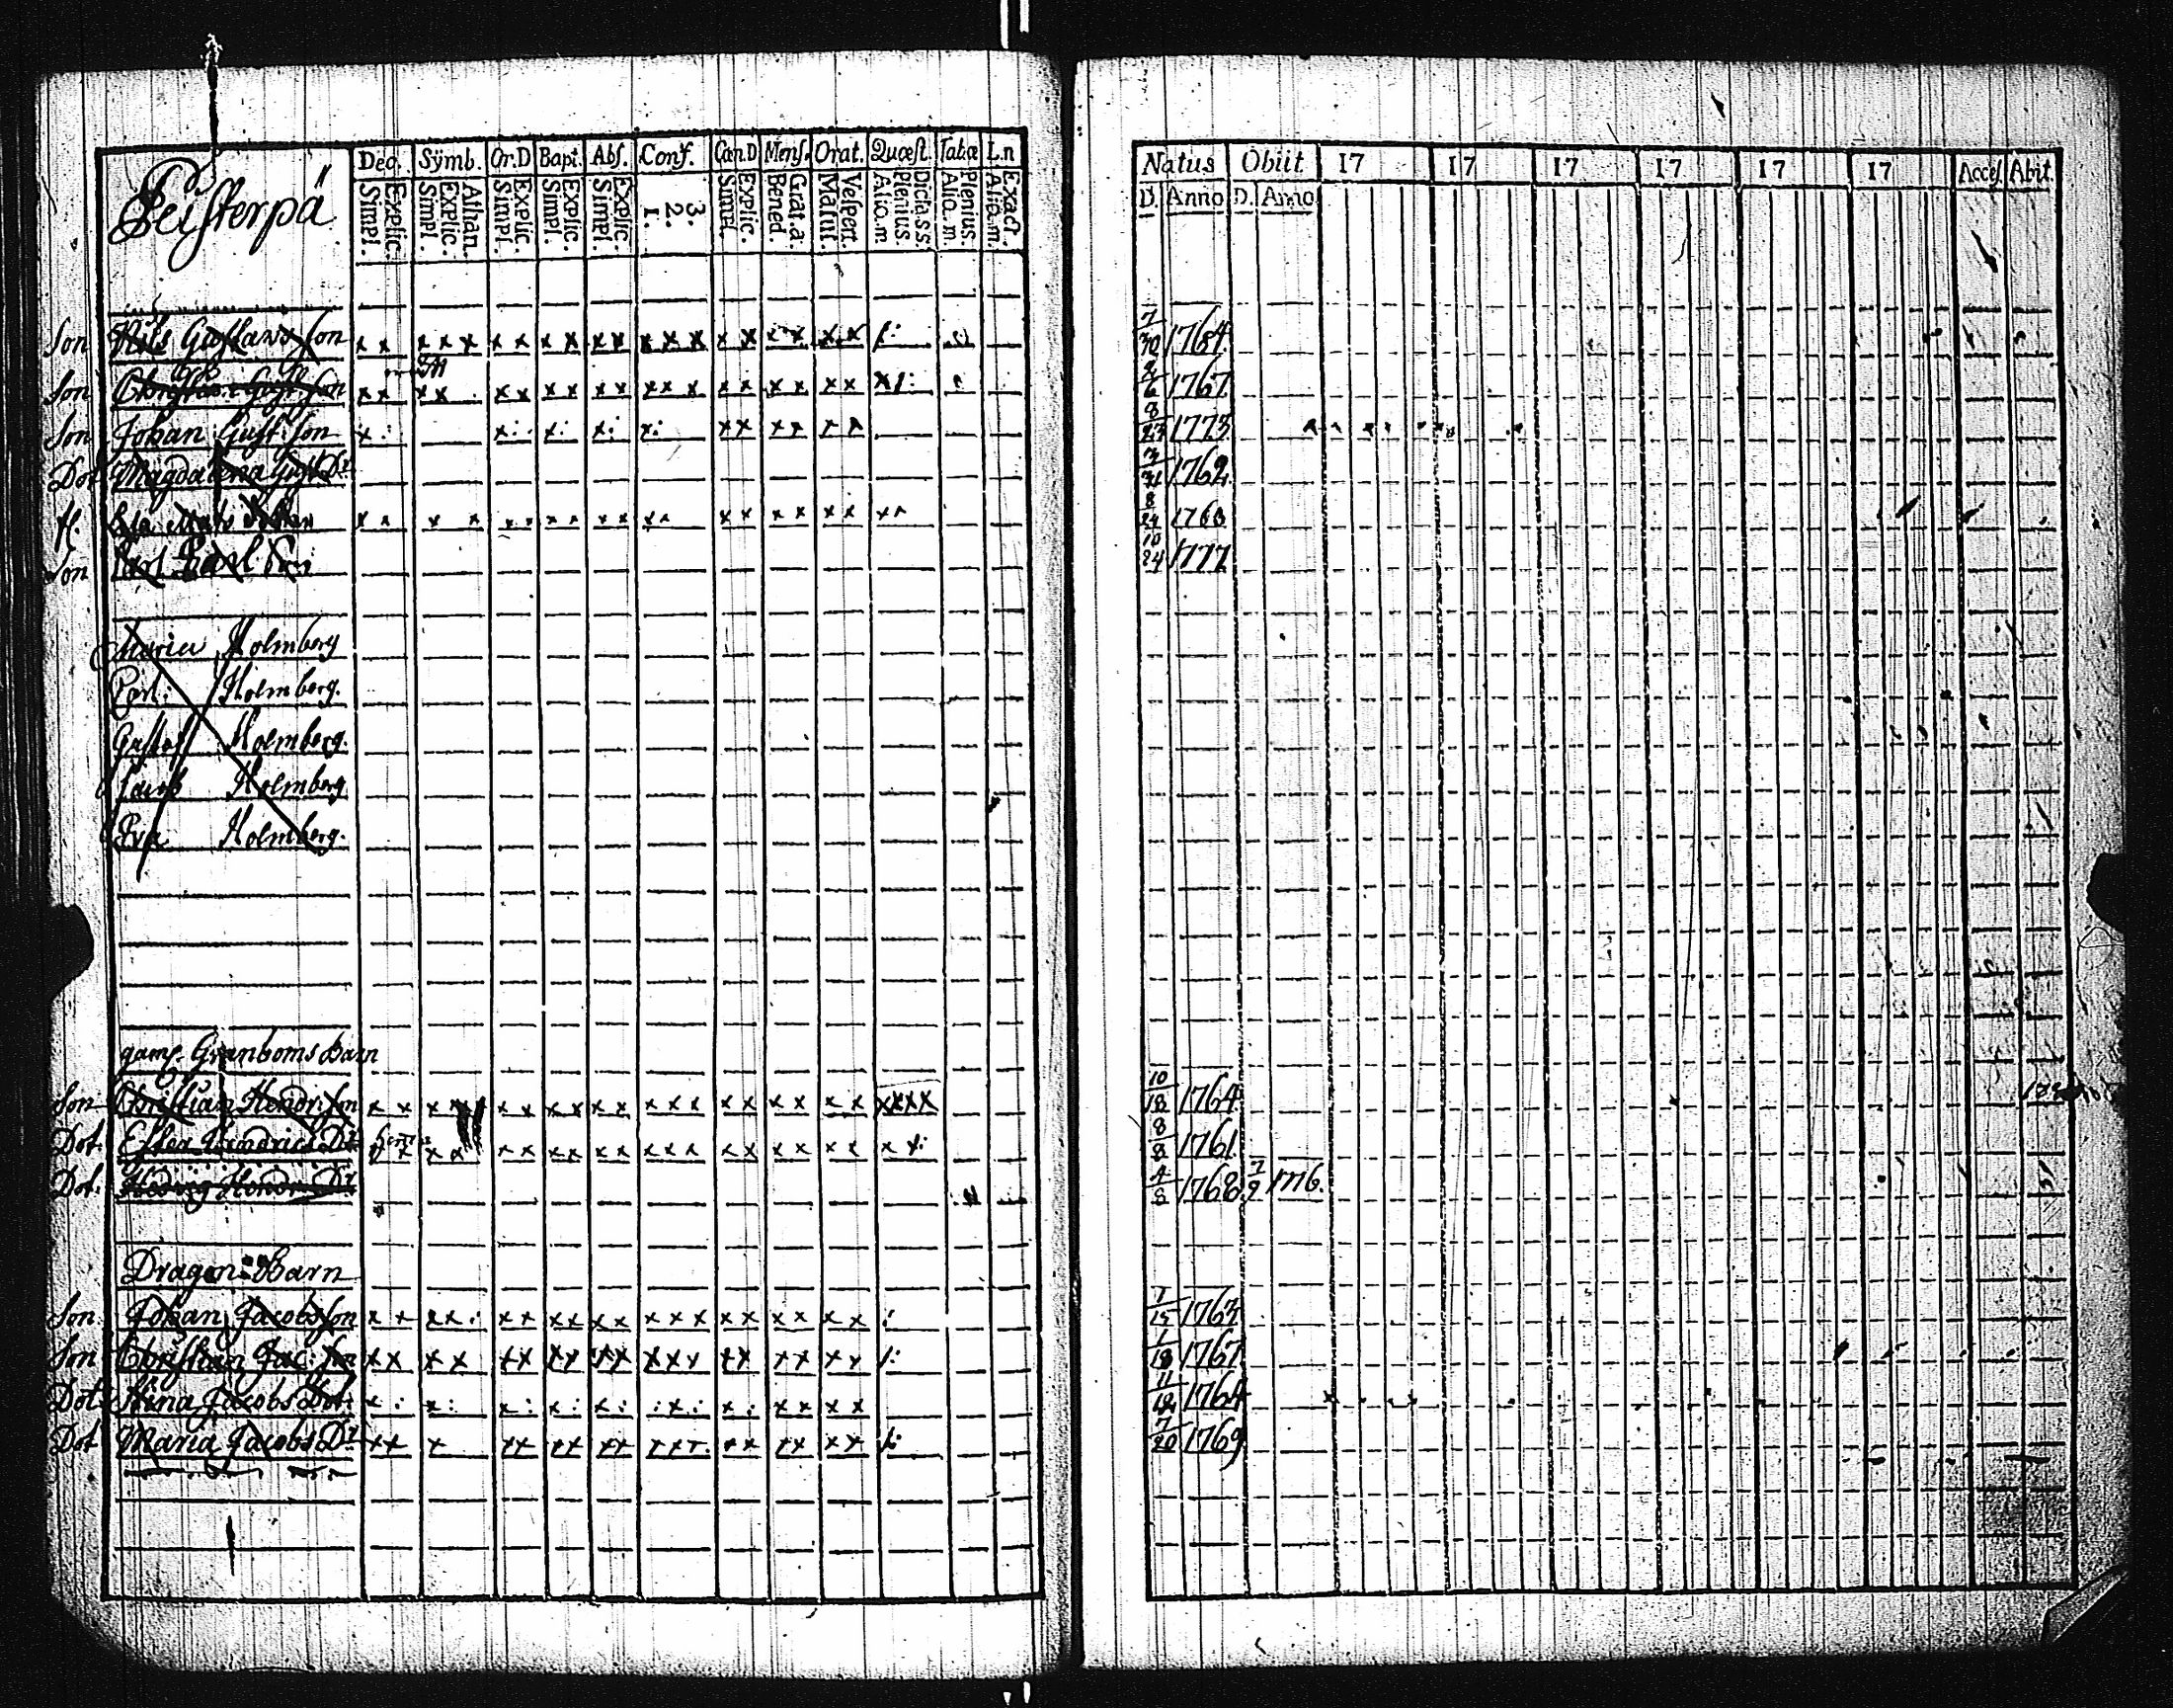 Peisterpä
Dec. Symb. Or.D Bapt. Abs. Conf. Can.D Mens. Orat. Quæst. Tab.æ L.n
Simpl. Explic. Simpl. Explic. Athan. Simpl. Explic. Simpl. Explic. Simpl. Explic. 1. 2. 3. Simpl. Explic. Bened. Grat.a. Matut. Vespert. Alio.m. Plenius. Dicta.s.s. Alio.m. Plenius. A.lio.m. Exact.
Natus Obiit 17 17 17 17 17 17 Acces. Abit.
D. Anno D. Anno
Son Nils Gustavs Son x x x x x x x x x x x x x x x x x x x 7/30 1764
Son Gust. Son x x x x x x x x x x x x x x x x x x 2/6 1767
Son Johan Gust. Son x x x x x x x x x x x 8/23 1773
Dot Magdalena Gust. Dr 1762
x x x x x x x x x x x x x x x x x x x 8/24
Son 10/24 1777
Maria Holmberg
Carl Holmberg.
Gustaf Holmberg.
Jacob Holmberg.
Eva Holmberg.
gaml. Granboms Barn
Son Christian Hendr. Son x x x x x x x x x x x x x x x x x x x x x x x x 10/18 1764
Dot. Hendrics Dr x x x x x x x x x x x x x x x x x x x 8/8 1761
Dot. Hedvig Hendr. Dr 4/8 1768 7/9 1776.
Dragon Barn
Son. Johan Jacobs Son x x x x x x x x x x x x x x x x x x x 1763
Son Christian Jac. Son x x x x x x x x x x x x x x x x x x x 1/18 1767
Dot Stina Jacobs Dot. x x x x x x x x x x x 1764
Dot Maria Jacobs Dr x x x x x x x x x x x x x x x x x x 7/20 1769